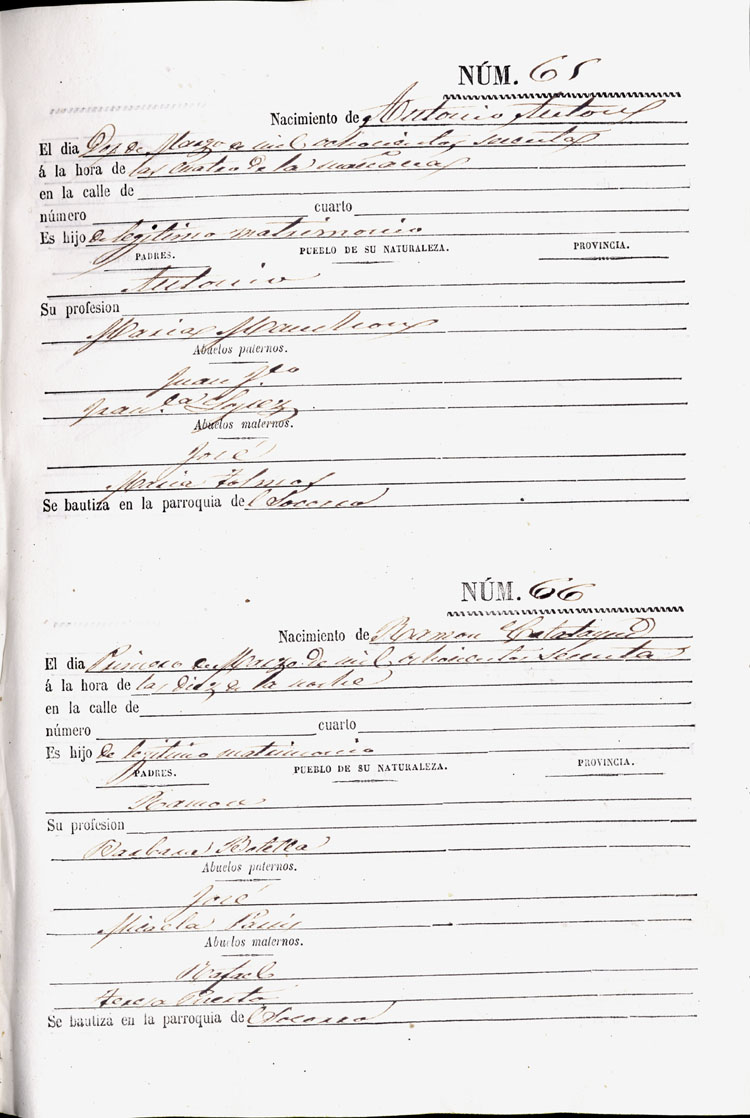 NÚM. 65
Nacimiento de Antonio Anton
El dia Dos de Marzo de mil ochocientos sesenta
á la hora de las cuatro de la mañana
en la calle de
número cuarto
Es hijo de legitimo matrimonio
PADRES. PUEBLO DE SU NATURALEZA. PROVINCIA.
Antonio
Su profesion
Maria
Abuelos paternos.
Juan
Fran.ca Lopez
Abuelos maternos.
José
Maria
Se bautiza en la parroquia del Socorro
NÚM. 66
Nacimiento de Ramon Calatayud
El dia Primero de Marzo de mil ochocientos sesenta
á la hora de las diez de la noche
en la calle de
número cuarto
Es hijo de legitimo matrimonio
PADRES. PUEBLO DE SU NATURALEZA. PROVINCIA.
Ramon
Su profesion
Barbara Botella
Abuelos paternos.
José
Micaela
Abuelos maternos.
Rafael
Teresa Puerto
Se bautiza en la parroquia del Socorro